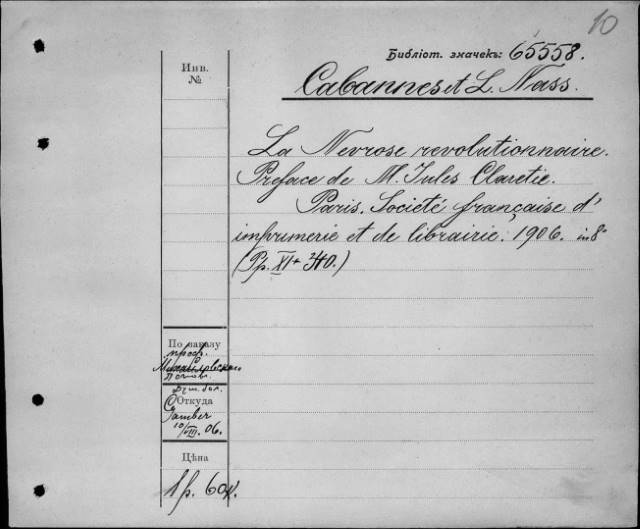 10
Библіот. значекъ: 65558.
Инв.
№
Cabannes et L. Nass.
La Nevrose revolutionnaire.
Preface de M. Jules Claretie.
Paris. Société française d'
imprimerie et de librairie. 1906. in 8°
(Pp. XI +
По заказу
проф.
Откуда
Gamber
10/VIII. 06.
Цѣна
1 р. 60 к.